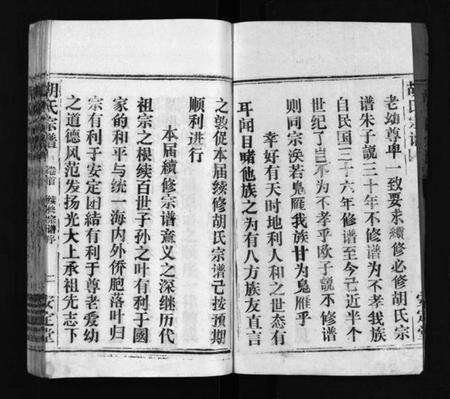 胡氏宗譜
老幼尊卑一致要求續修必修胡氏宗
谱朱子説三十年不修谱为不孝我族
自民国三十六年修谱至今已近半个
世纪了岂不为不孝乎欧子説不修谱
则同宗涣若凫雁我族甘为凫雁乎
幸好有天时地利人和之世态有
耳闻目睹他族之为有八方族友直言
安定堂
之敦促本届续修胡氏宗谱已按预期
顺利进行
本届續修宗谱意义之深继历代
祖宗之根续百世子孙之叶有利于國
家的和平与统一海内外侨胞落叶归
宗有利于安定团結有利于尊老爱幼
之道德风范发扬光大上承祖先志下
胡氏宗譜
卷首
续修宗谱序
一
安定堂